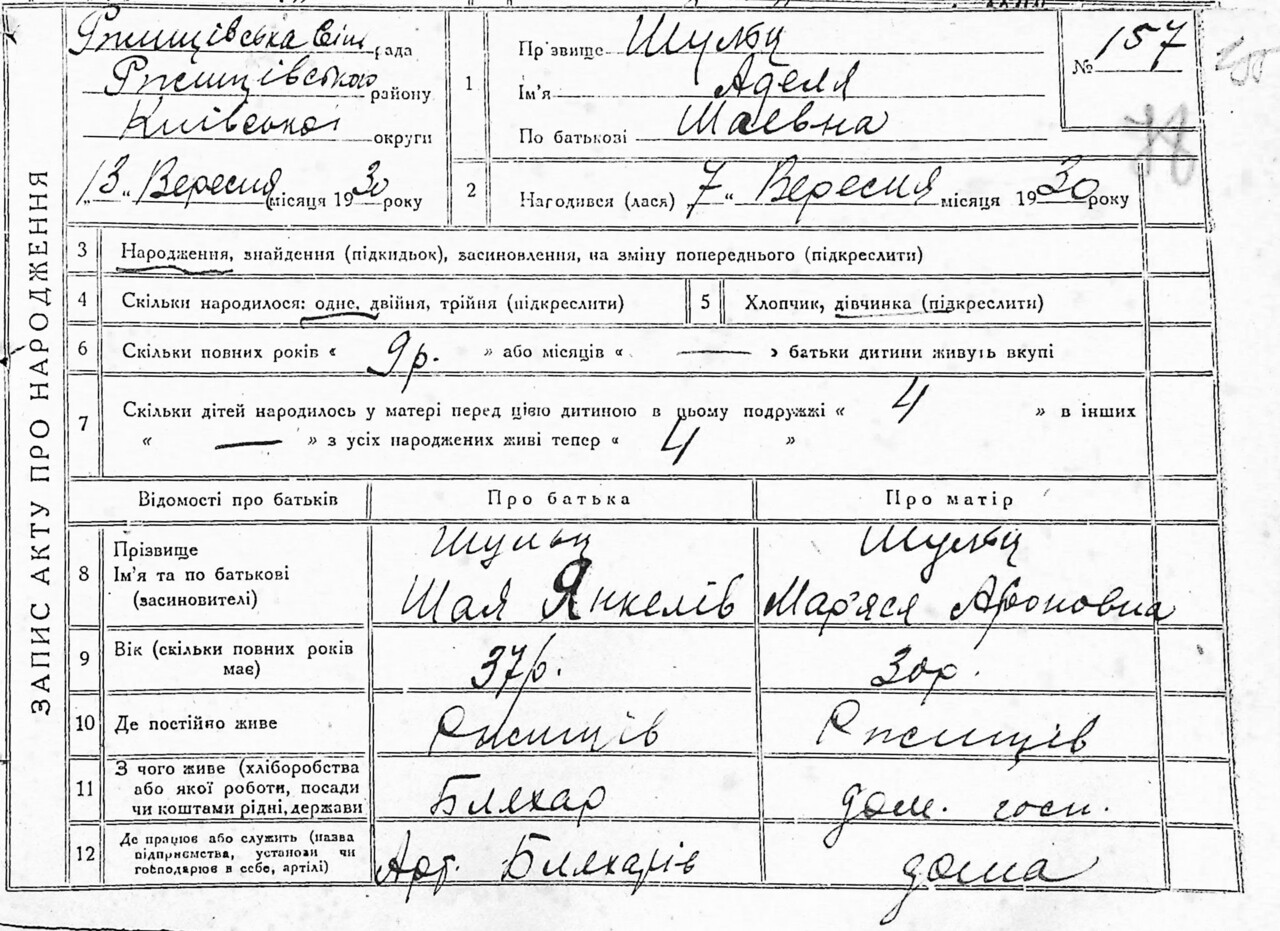 ЗАПИС АКТУ ПРО НАРОДЖЕННЯ
Ржищівська рада
Ржищівського району
Київської округи
„13“ Вересня місяця 1930 року
1
Пр'звище Шульц
Ім'я Аделя
По батькові Шаєвна
№ 157
78
2
Нагодився (лася) „7“ Вересня місяця 1930 року
3 Народження, знайдення (підкидьок), засиновлення, на зміну попереднього (підкреслити)
4 Скільки народилося: одне, двійня, трійня (підкреслити)
5 Хлопчик, дівчинка (підкреслити)
6 Скільки повних років « 9 р. » або місяців « — » батьки дитини живуть вкупі
7 Скільки дітей народилось у матері перед цією дитиною в цьому подружжі « 4 » в інших
« — » з усіх народжених живі тепер « 4 »
Відомості про батьків Про батька Про матір
8 Прізвище
Ім'я та по батькові
(засиновителі)
Шульц
Шая Янкелів
Шульц
Мар'яся Ароновна
9 Вік (скільки повних років
має)
37 р.
30 р.
10 Де постійно живе Ржищів Ржищів
11 З чого живе (хліборобства
або якої роботи, посади
чи коштами рідні, держави
Бляхар
дом. госп.
12 Де працює або служить (назва
підприємства, установи чи
господарює в себе, артілі)
Арт. Бляхарів
дома